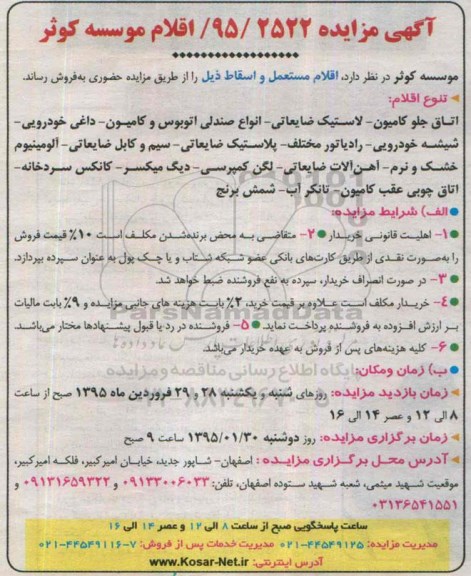 آگهی مزایده ۲۵۲۲ /۹۵/ اقلام موسسه کوثر
موسسه کوثر در نظر دارد، اقلام مستعمل و اسقاط ذیل را از طریق مزایده حضوری به‌فروش رساند.
تنوع اقلام:
اتاق جلو کامیون- لاستیک ضایعاتی- انواع صندلی اتوبوس و کامیون- داغی خودرویی-
شیشه خودرویی- رادیاتور مختلف- پلاستیک ضایعاتی- سیم و کابل ضایعاتی- آلومینیوم
خشک و نرم- آهن‌آلات ضایعاتی- لگن کمپرسی- دیگ میکسر- کانکس سردخانه-
اتاق چوبی عقب کامیون- تانکر آب- شمش برنج
الف) شرایط مزایده:
۱- اهلیت قانونی خریدار ۲- متقاضی به محض برنده‌شدن مکلف است ۱۰٪ قیمت فروش
را به‌صورت نقدی از طریق کارت‌های بانکی عضو شبکه شتاب و یا چک پول به عنوان سپرده بپردازد.
۳- در صورت انصراف خریدار، سپرده به نفع فروشنده ضبط خواهد شد.
۴- خریدار مکلف است علاوه بر قیمت خرید، ۲٪ بابت هزینه های جانبی مزایده و ۹٪ بابت مالیات
بر ارزش افزوده به فروشنده پرداخت نماید. ۵- فروشنده در رد یا قبول پیشنهادها مختار می‌باشد.
۶- کلیه هزینه‌های پس از فروش به عهده خریدار می‌باشد.
ب) زمان ومکان:
زمان بازدید مزایده: روزهای شنبه و یکشنبه ۲۸ و ۲۹ فروردین ماه ۱۳۹۵ صبح از ساعت
۸ الی ۱۲ و عصر ۱۴ الی ۱۶
زمان برگزاری مزایده: روز دوشنبه ۱۳۹۵/۰۱/۳۰ ساعت ۹ صبح
آدرس محل برگزاری مزایده : اصفهان- شاپور جدید، خیابان امیرکبیر، فلکه امیرکبیر،
موقعیت شهید میثمی، شعبه شهید ستوده اصفهان، تلفن: ۰۹۱۳۳۰۰۶۰۳۳ و ۰۹۱۳۱۶۵۹۳۲۲ و
۰۳۱۳۶۵۴۱۵۵۱
ساعت پاسخگویی صبح از ساعت ۸ الی ۱۲ و عصر ۱۴ الی ۱۶
مدیریت مزایده: ۴۴۵۴۹۱۲۵-۰۲۱ مدیریت خدمات پس از فروش: ۷-۴۴۵۴۹۱۱۶-۰۲۱
آدرس اینترنتی: www.Kosar-Net.ir
ParsNamadData
پایگاه اطلاع رسانی مناقصه و مزایده